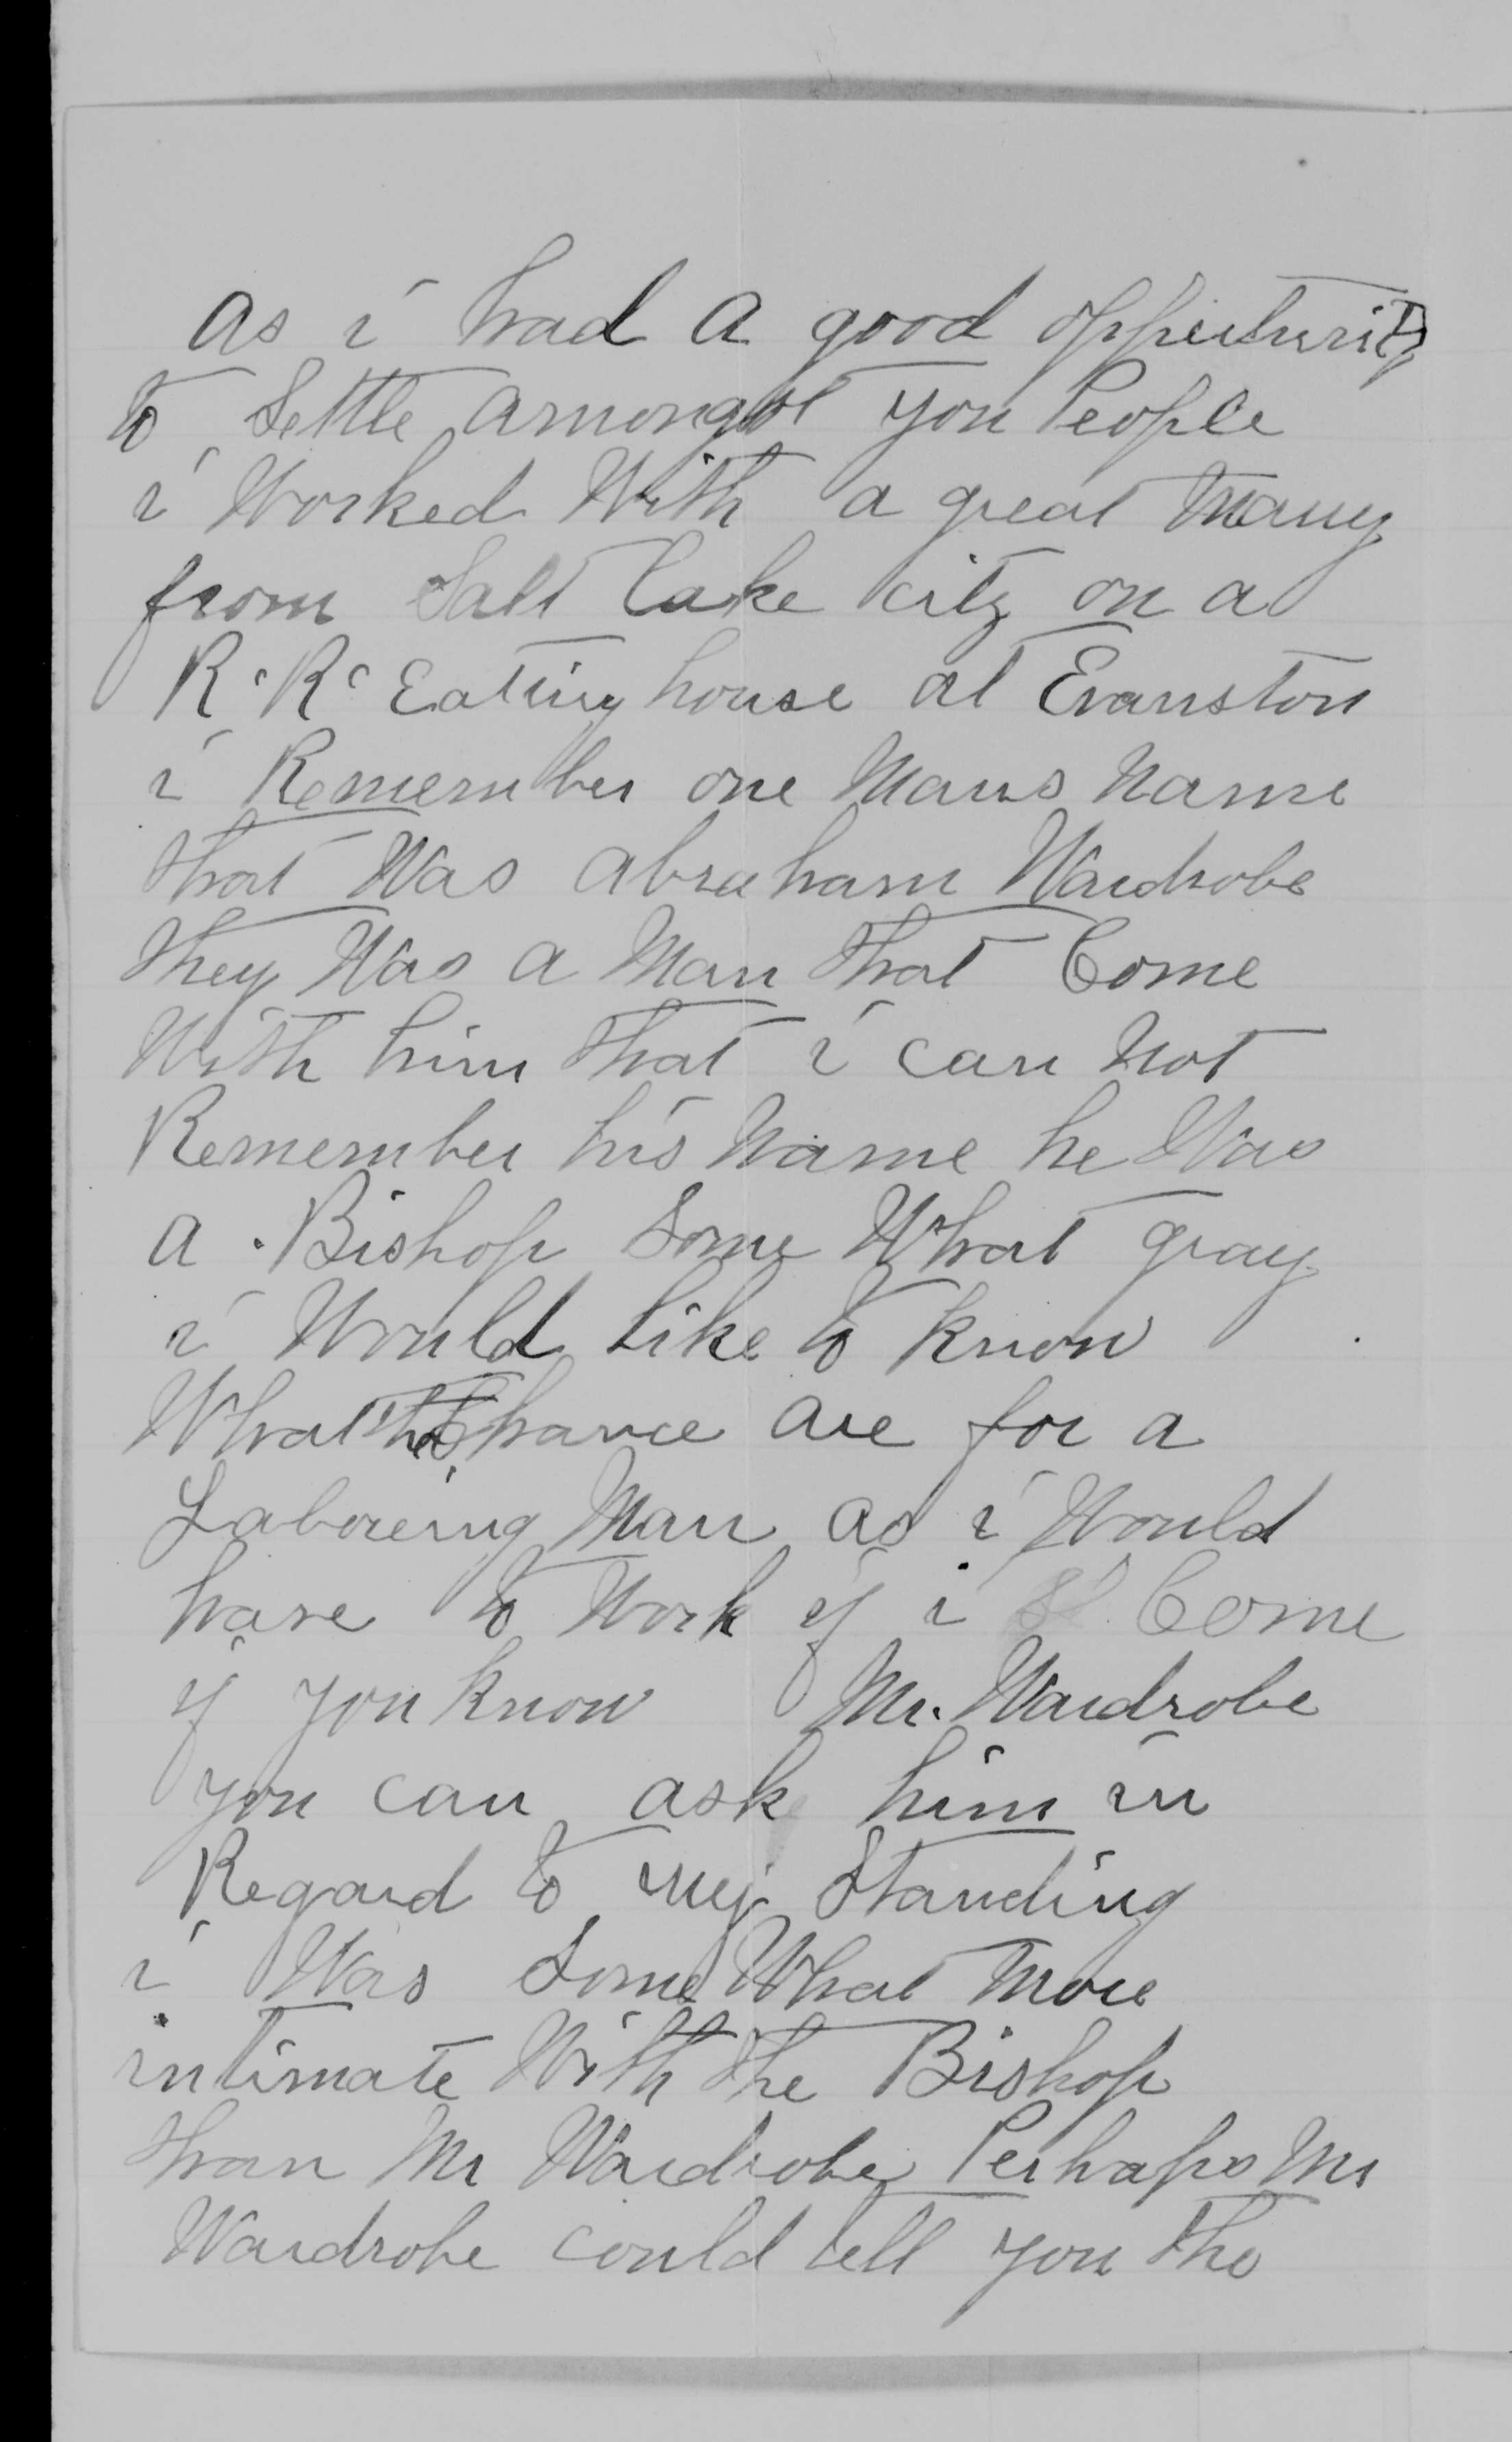 as i had a good oppertunity
to Settle amongst you People
i Worked With a great Many
from Salt Lake city on a
R. R. Eating house at Evanston
i Remember one Mans Name
that Was abraham Wardrobe
they Was a Man that Come
With him that i can Not
Remember his Name he Was
a Bishop Some What gray
i Would Like to know
What the Chance are for a
Laboreing Man as i Would
have to Work if i Come
if you know Mr. Wardrobe
you can ask him in
Regard to my Standing
i Was Some What More
intimate With the Bishop
than Mr Wardrobe Perhaps Mr
Wardrobe could tell you the